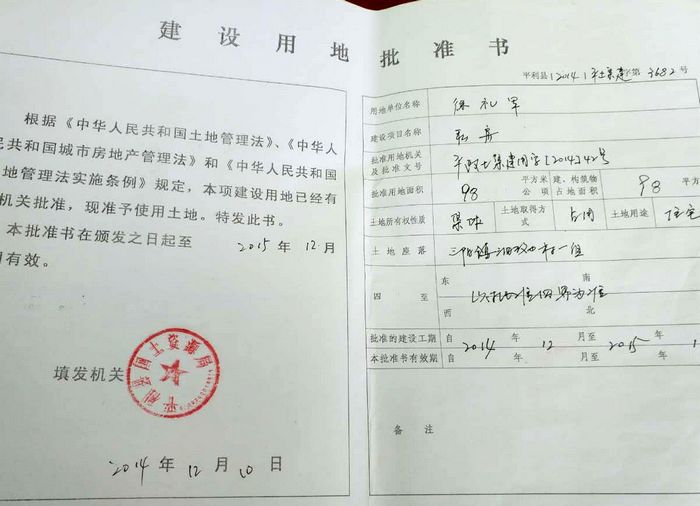 建设用地批准书
根据《中华人民共和国土地管理法》、《中华人
民共和国城市房地产管理法》和《中华人民共和国
地管理法实施条例》规定，本项建设用地已经有
机关批准，现准予使用土地。特发此书。
本批准书在颁发之日起至 2015 年 12 月
有效。
平利县国土资源局
填发机关
2014 年 12 月 10 日
平利县(2014)平土集建字第3682号
用地单位名称 徐礼军
建设项目名称
批准用地机关及批准文号 平政土集建用字[2014]42号
批准用地面积 98 平方米 公顷 建、构筑物占地面积 98 平方
土地所有权性质 集体 土地取得方式 占用 土地用途 住宅
土地座落 三阳镇 村一组
四至 东 南 西 北 以 四界为准
批准的建设工期 自 2014 年 12 月至 2015 年 1
本批准书有效期 自 年 月至 年
备注